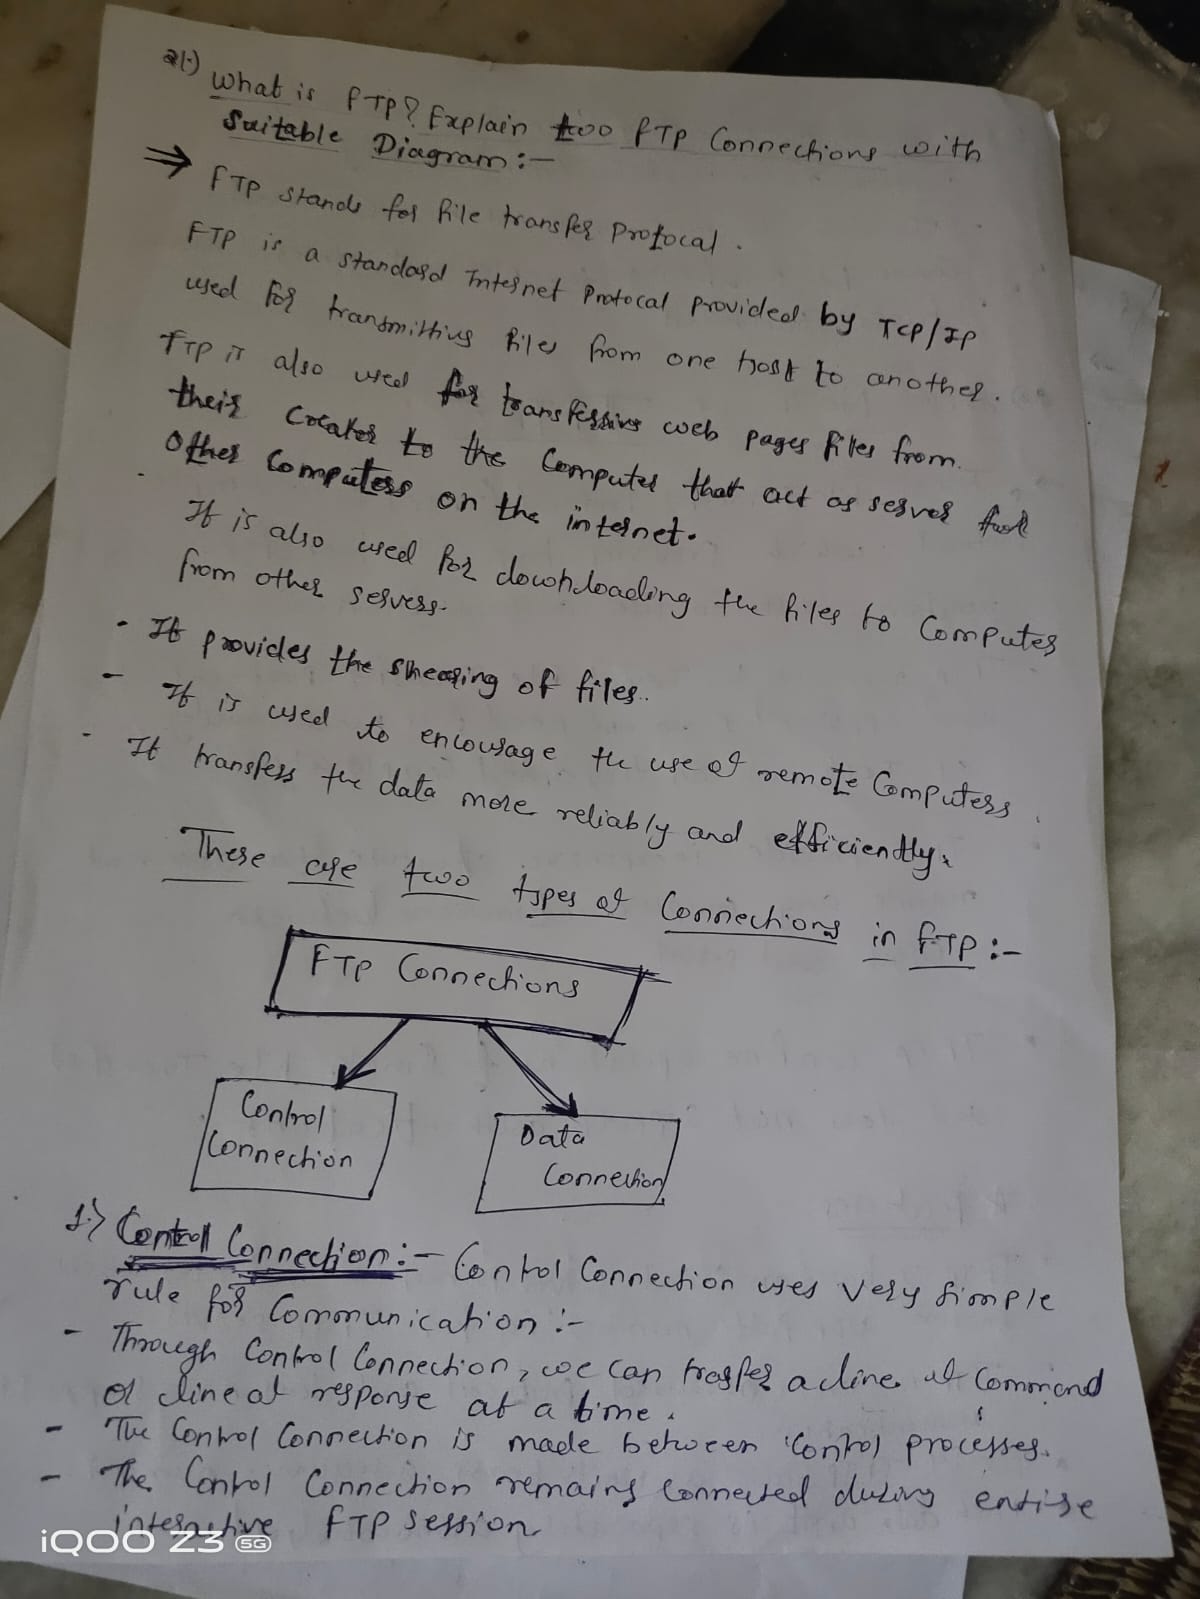 21.)
What is FTP? Explain two FTP Connections with
Suitable Diagram:-
⇒ FTP stands for File transfer Protocal.
FTP is a standard Internet Protocal provided by TCP/IP
used for transmitting files from one host to another.
FTP is also used for transferring web pages files from
their Creator to the Computer that act as server
Other Computers on the internet.
It is also used for downloading the files to Computer
from other servers.
· It provides the shearing of files..
- It is used to encourage the use of remote Computers.
- It transfers the data more reliably and efficiendtly.
There are two types of Connections in FTP :-
FTP Connections
Control
Connection
Data
Connection
1.) Control Connection:- Control Connection uses very simple
rule for Communication :-
- Through Control Connection, we can trasfer a line of Command
or line of response at a time.
- The Control Connection is made between Control processes.
- The Control Connection remains Connected during entire
interactive FTP session
iQOO Z3 5G